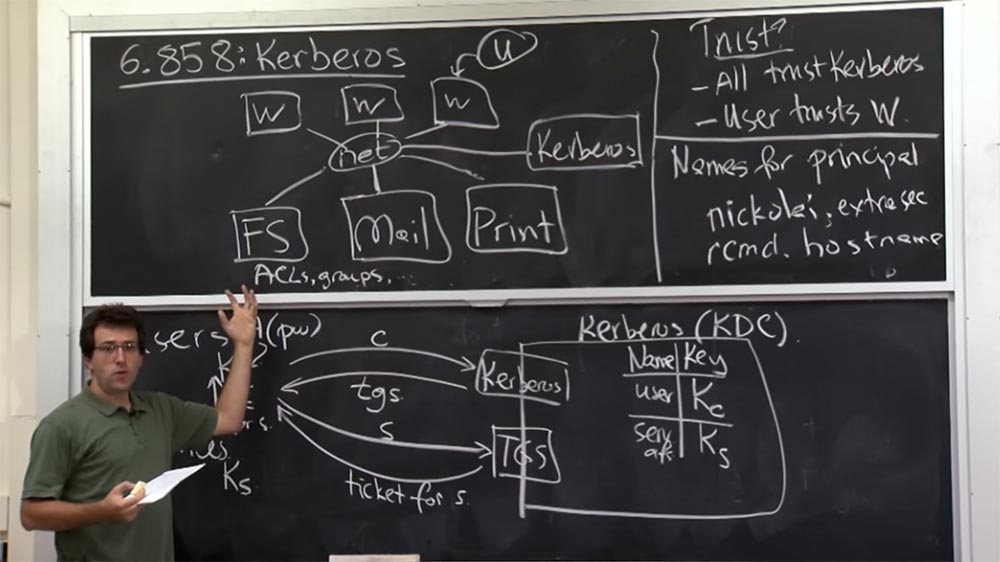 6.858: Kerberos
u
w
w
w
net
Kerberos
FS
Mail
Print
ACLs, groups, ...
Trust?
- All trust Kerberos
- User trusts W.
Names for principal
nickolai, extra sec
rcmd. hostname
sers
(pw)
c
Kerberos
tgs.
s
TGS
ticket for s.
Ks
Kerberos (KDC)
Name Key
user Kc
serv Ks
afs